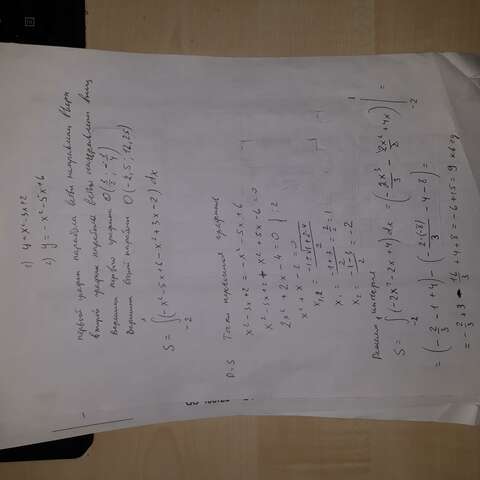 1) y = x² - 3x + 2
2) y = -x² - 5x + 6
первый график парабола ветви направлены вверх
второй график парабола ветви направлены вниз
вершина первой параболы O (3/2; -1/4)
вершина второй параболы O (-2,5; 12,25)
S = ∫₋₂¹ (-x² - 5x + 6 - x² + 3x - 2) dx
D = S
Точки пересечения графиков
x² - 3x + 2 = -x² - 5x + 6
x² - 3x + 2 + x² + 5x - 6 = 0
2x² + 2x - 4 = 0 | : 2
x² + x - 2 = 0
x₁,₂ = (-1 ± √(1 + 4·2))/2
x₁ = (-1 + 3)/2 = 2/2 = 1
x₂ = (-1 - 3)/2 = -4/2 = -2
Решаю интеграл
S = ∫₋₂¹ (-2x² - 2x + 4) dx = (-2x³/3 - 2x²/2 + 4x) |₋₂¹ =
= (-2/3 - 1 + 4) - (-2·(-8)/3 - 4 - 8) =
= -2/3 + 3 - 16/3 + 4 + 8 = -6 + 15 = 9 кв.ед